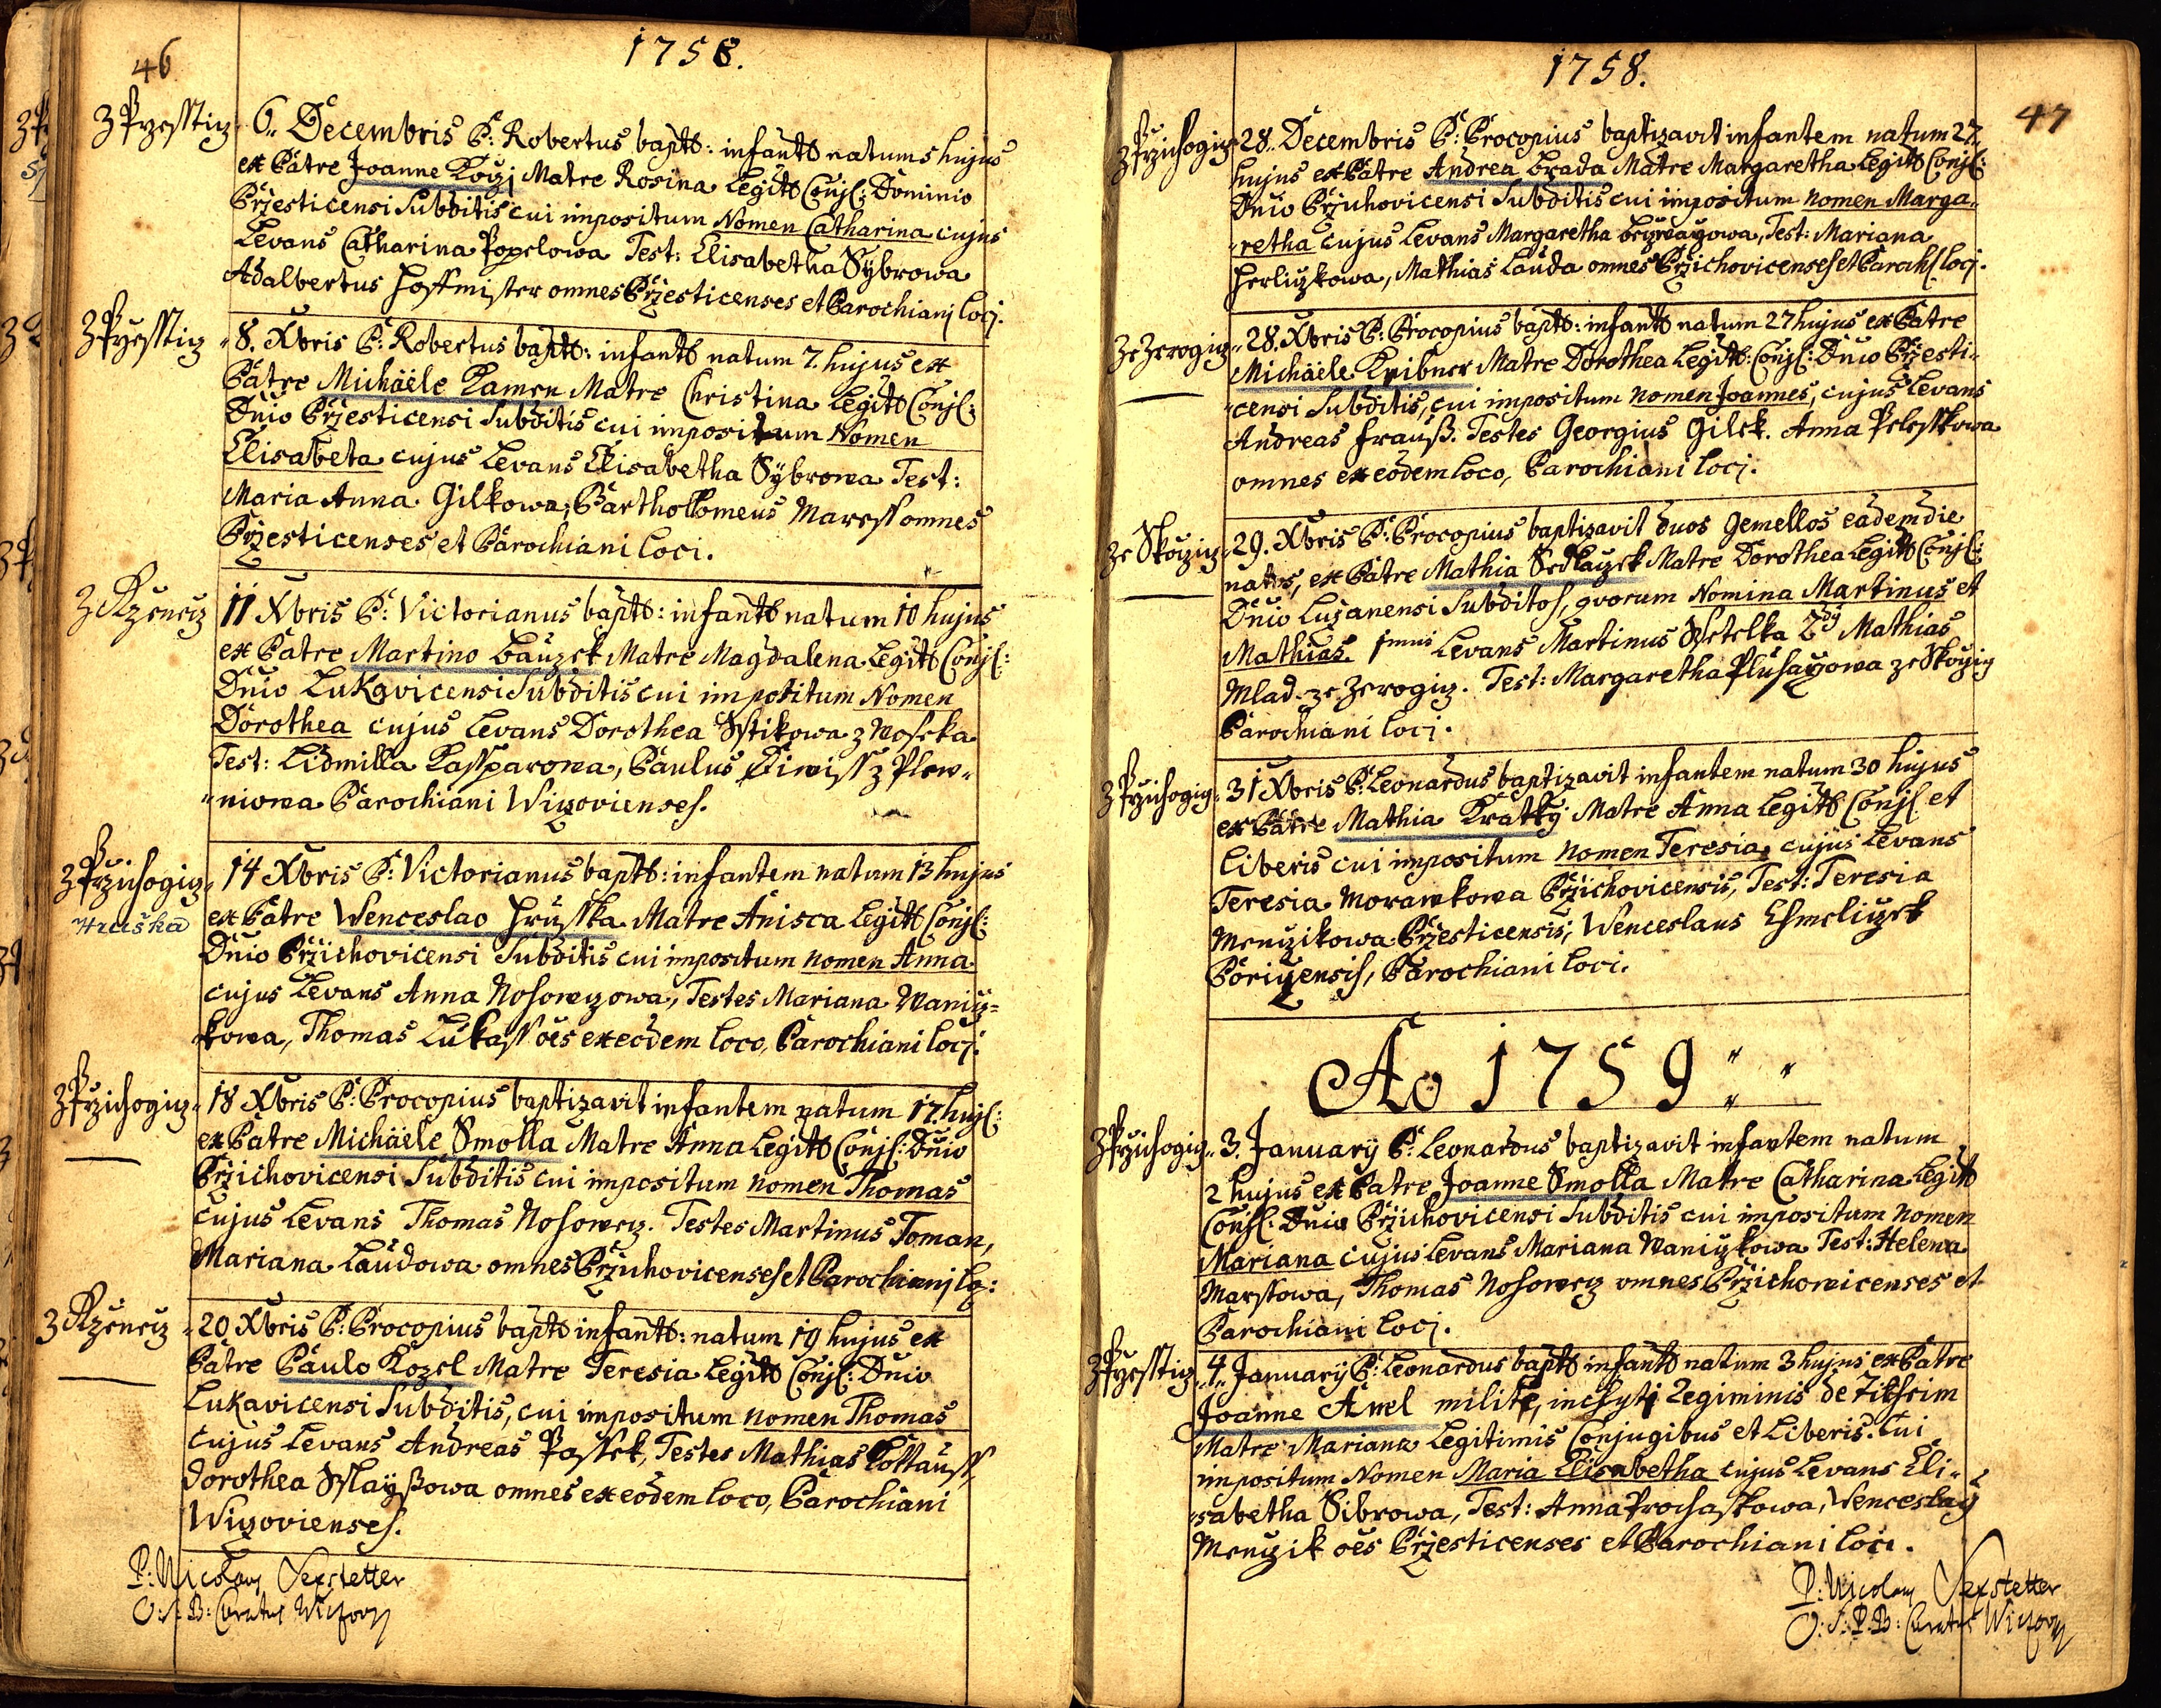 46
1758.
z Przesstiz
6. Decembris P: Robertus bapt: infant natum 5 hujus
ex Patre Joanne Koizj Matre Rosina Legit Conj: Dominio
Przesticensi Subditis cui impositum Nomen Catharina cujus
Levans Catharina Popelowa Test: Elisabetha Sÿbrowa
Adalbertus Hoffmister omnes Przesticenses et Parochianj locj.
z Przesstiz
8. Xbris P: Robertus bapt: infant natum 7. hujus ex
Patre Michäele Kamen Matre Christina Legit Conj:
Dnio Przesticensi Subditis cui impositum Nomen
Elisabeta cujus Levans Elisabetha Sÿbrowa Test:
Maria Anna Gilkowa, Bartholomeus Maress omnes
Przesticenses et Parochiani loci.
z Rzeneiz
11 Xbris P: Victorianus bapt: infant natum 10 hujus
ex Patre Martino Bauzek Matre Magdalena Legit Conj:
Dnio Lukavicensi Subditis cui impositum Nomen
Dorothea cujus Levans Dorothea Sstikowa z Woseka
Test: Lidmilla Kassparowa, Paulus Diwiss z Plew-
niowa Parochiani Wizovienses.
z Przichogiz
Hruška
14 Xbris P: Victorianus bapt: infantem natum 13 hujus
ex Patre Wenceslao Hrusska Matre Anisca Legit Conj:
Dnio Przichovicensi Subditis cui impositum nomen Anna
cujus Levans Anna Nosowizowa, Testes Mariana Waniz-
kowa, Thomas Lukass oes ex eodem loco, Parochiani locj.
z Przichogiz
18 Xbris P: Procopius baptizavit infantem natum 17. huj:
ex Patre Michäele Smolla Matre Anna Legit Conj: Dnio
Przichovicensi Subditis cui impositum nomen Thomas
cujus Levans Thomas Nosoweiz. Testes Martinus Toman,
Mariana Laudowa omnes Przichovicenses et Parochianj lo:
z Rzeneiz
20 Xbris P: Procopius bapt infant: natum 19 hujus ex
Patre Paulo Kozel Matre Teresia Legit Conj: Dnio
Lukavicensi Subditis, cui impositum nomen Thomas
cujus Levans Andreas Passek, Testes Mathias Kottauss,
Dorothea Sslayßowa omnes ex eodem loco, Parochiani
Wizovienses.
P: Nicolaus Sexstetter
O: S: B: Curatus
1758.
47
z Przichogiz
28. Decembris P: Procopius baptizavit infantem natum 27
hujus ex Patre Andrea Brada Matre Margaretha Legit Conj:
Dnio Przichovicensi Subditis cui impositum nomen Marga-
retha cujus Levans Margaretha Test: Mariana
Herlizkowa, Mathias Lauda omnes Przichovicenses et Paroch: locj.
ze Zerogiz
28. Xbris P: Procopius bapt: infant natum 27 hujus ex Patre
Michäele Knibner Matre Dorothea Legit: Conj: Dnio Przesti-
censi Subditis, cui impositum nomen Joannes, cujus Levans
Andreas Frauß. Testes Georgius Gilek. Anna Pelesskowa
omnes ex eodem loco, Parochiani locj.
ze Skoiziz
29. Xbris P: Procopius baptizavit duos Gemellos eadem die
natos, ex Patre Mathia Sedlayzek Matre Dorothea Legit Conj:
Dnio Luzanensi Subditos, qvorum Nomina Martinus et
Mathias. 1mus Levans Martinus Wetelka 2dÿ Mathias
Mlad ze Zerogiz. Test: Margaretha Pluhayowa ze Skoiziz
Parochiani locj.
z Przichogiz
31 Xbris P: Leonardus baptizavit infantem natum 30 hujus
ex Patre Mathia Kratkÿ Matre Anna Legit Conj et
Liberis cui impositum nomen Teresia, cujus Levans
Teresia Morawkowa Przichovicensis, Test: Teresia
Menzikowa Przesticensis, Wenceslaus Chmelizek
Porizensis, Parochiani loci.
Ao 1759
z Przichogiz
3. Januarÿ P: Leonardus baptizavit infantem natum
2 hujus ex Patre Joanne Smolla Matre Catharina Legit
Conj: Dnio Przichovicensi Subditis cui impositum nomen
Mariana cujus Levans Mariana Wanizkowa Test: Helena
Marssowa, Thomas Nosoweiz omnes Przichowicenses et
Parochiani locj.
z Przesstiz
4. Januarÿ P: Leonardus bapt infant natum 3 hujus ex Patre
Joanne Amel milite, inclyti Regiminis de
Matre Mariana Legitimis Conjugibus et Liberis. Cui
impositum Nomen Maria Elisabetha cujus Levans Eli-
sabetha Sibrowa, Test: Anna Prochaskowa, Wenceslaÿ
Menzik oes Przesticenses et Parochiani loci.
P: Nicolaus Sexstetter
O: S: P: B: Curatus